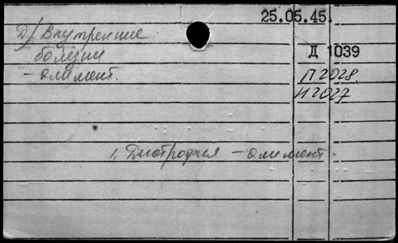 25.05.45.
Д/ Внутренние
болезни
Д 1039
- алимент.
П 2028
И 2027
1, Дистрофия - алимент.